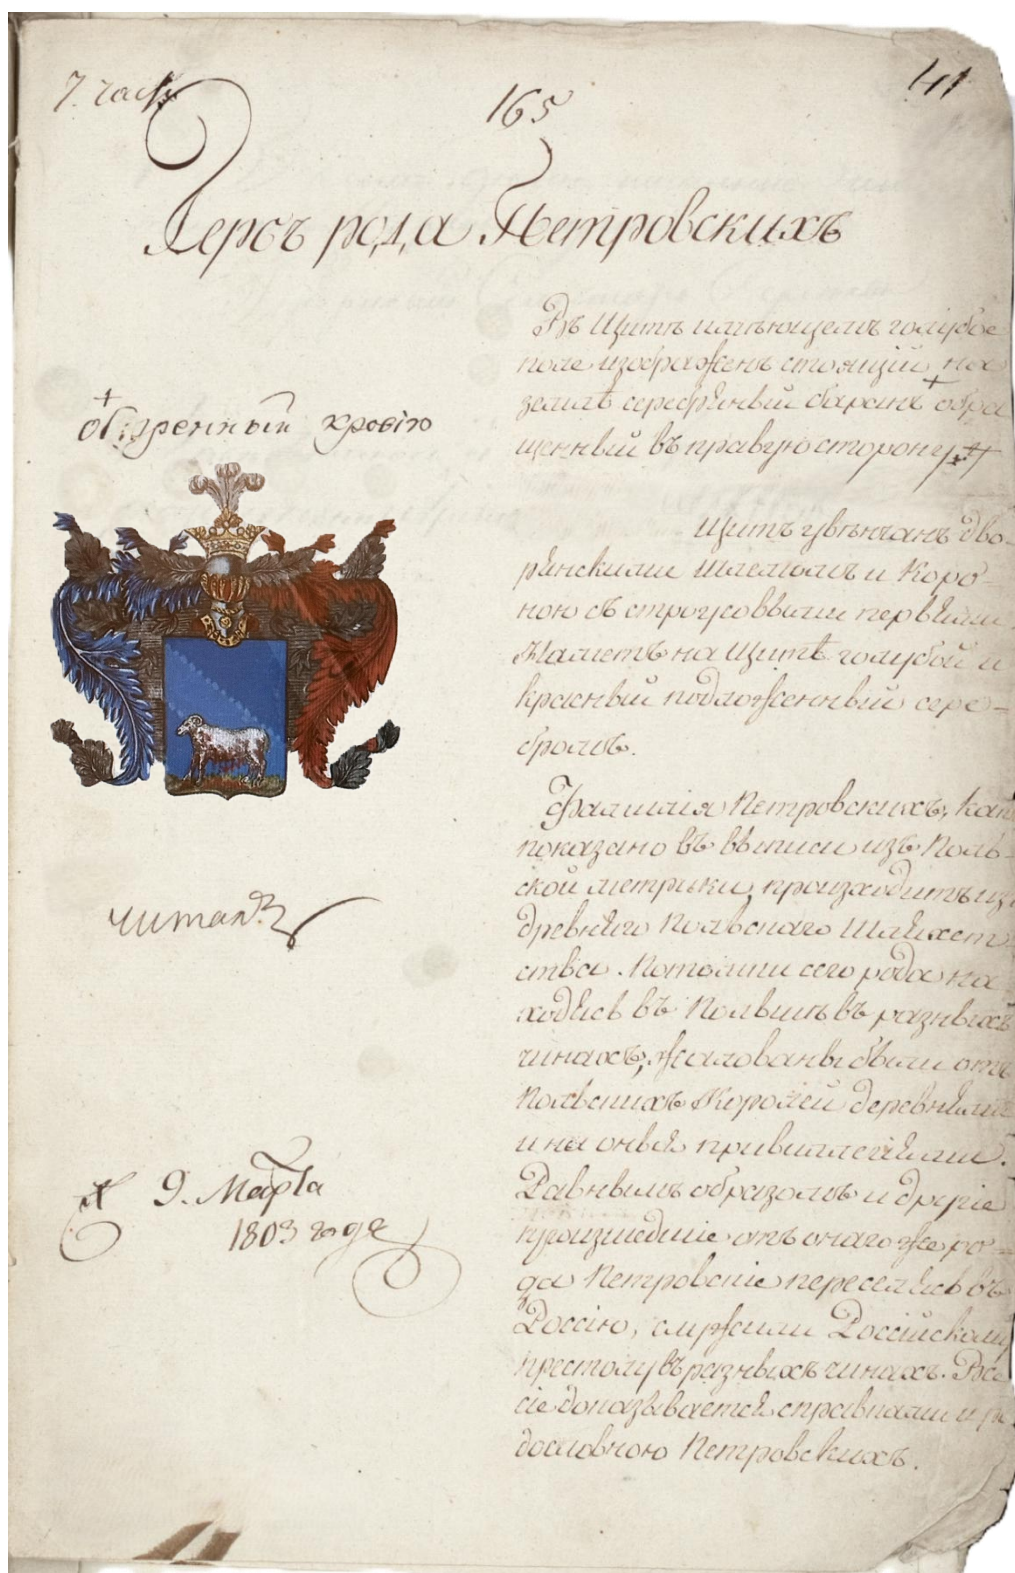 7. часть
165
41
Гербъ рода Петровскихъ
Въ Щитѣ имѣющемъ голубое
поле изображенъ стоящій на
землѣ серебряный баранъ + обра
щенный въ правую сторону
+
обагренный кровію
Щитъ увѣнчанъ дво-
рянскими Шлемомъ и Коро-
ною съ строусовыми перьями.
Наметъ на Щитѣ голубой и
красный подложенный сере-
бромъ.
Фамилія Петровскихъ, какъ
показано въ выписи изъ Поль-
ской метрики, происходитъ изъ
древняго Польскаго Шляхет
ства. Потомки сего рода на
ходясь въ Польшѣ въ разныхъ
чинахъ, жалованы были отъ
Польскихъ Королей деревнями
и на оныя привиллегіями.
Равнымъ образомъ и другіе
произшедшіе отъ онаго же ро-
да Петровскіе переселясь въ
Россію, служили Россійскому
престолу въ разныхъ чинахъ. Все
сіе доказывается справками и ро
дословною Петровскихъ.
читалъ
9. Марта
1803 года